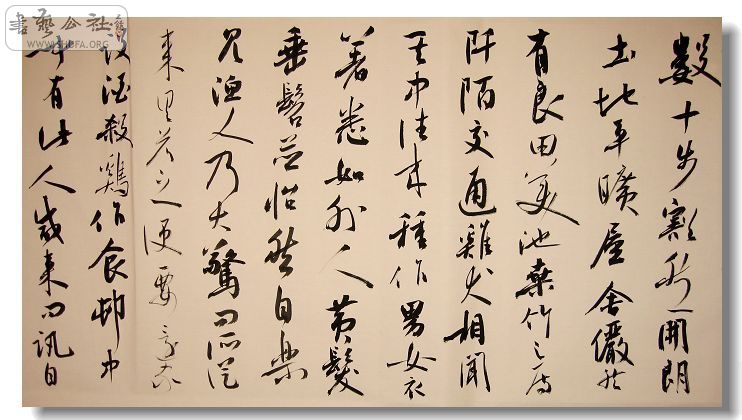 數十步豁然開朗
土地平曠屋舍儼然
有良田美池桑竹之屬
阡陌交通雞犬相聞
其中往來種作男女衣
著悉如外人黃髮
垂髫並怡然自樂
見漁人乃大驚問所從
來具答之便要還家
設酒殺鷄作食邨中
聞有此人咸來問訊自
書藝公社
WWW.SHUFA.ORG